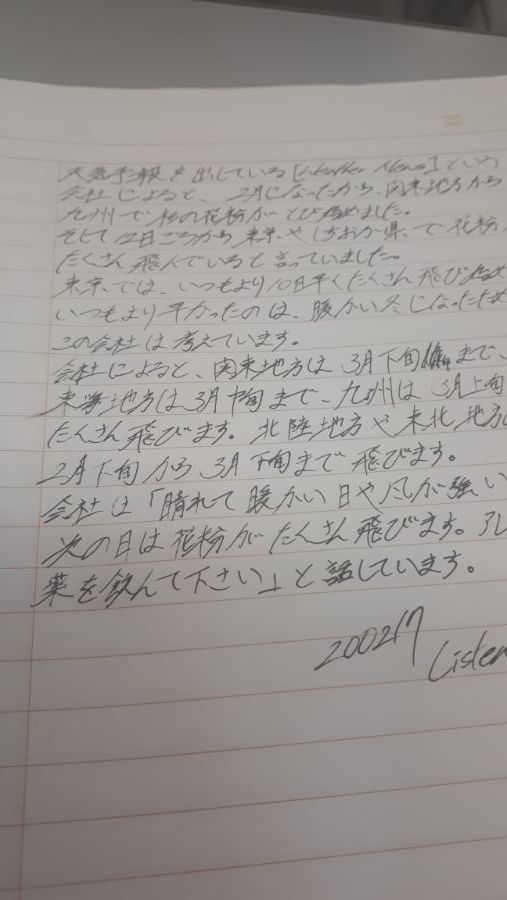 天気予報を出している「Weather News」という
会社によると、2月になったから、関東地方から
九州で杉の花粉がとび始めました。
そして12日ごろから東京やしずおか県で花粉
たくさん飛んでいると言っていました。
東京では、いつもより10日早くたくさん飛び始め
いつもより早かったのは、暖かい冬になったため
この会社は考えています。
会社によると、関東地方は3月下旬まで、
東海地方は3月中旬まで、九州は3月上旬
たくさん飛びます。北陸地方や東北地方
2月下旬から3月下旬まで飛びます。
会社は「晴れて暖かい日や風が強い
次の日は花粉がたくさん飛びます。アレ
薬を飲んで下さい」と話しています。
200217
Listen